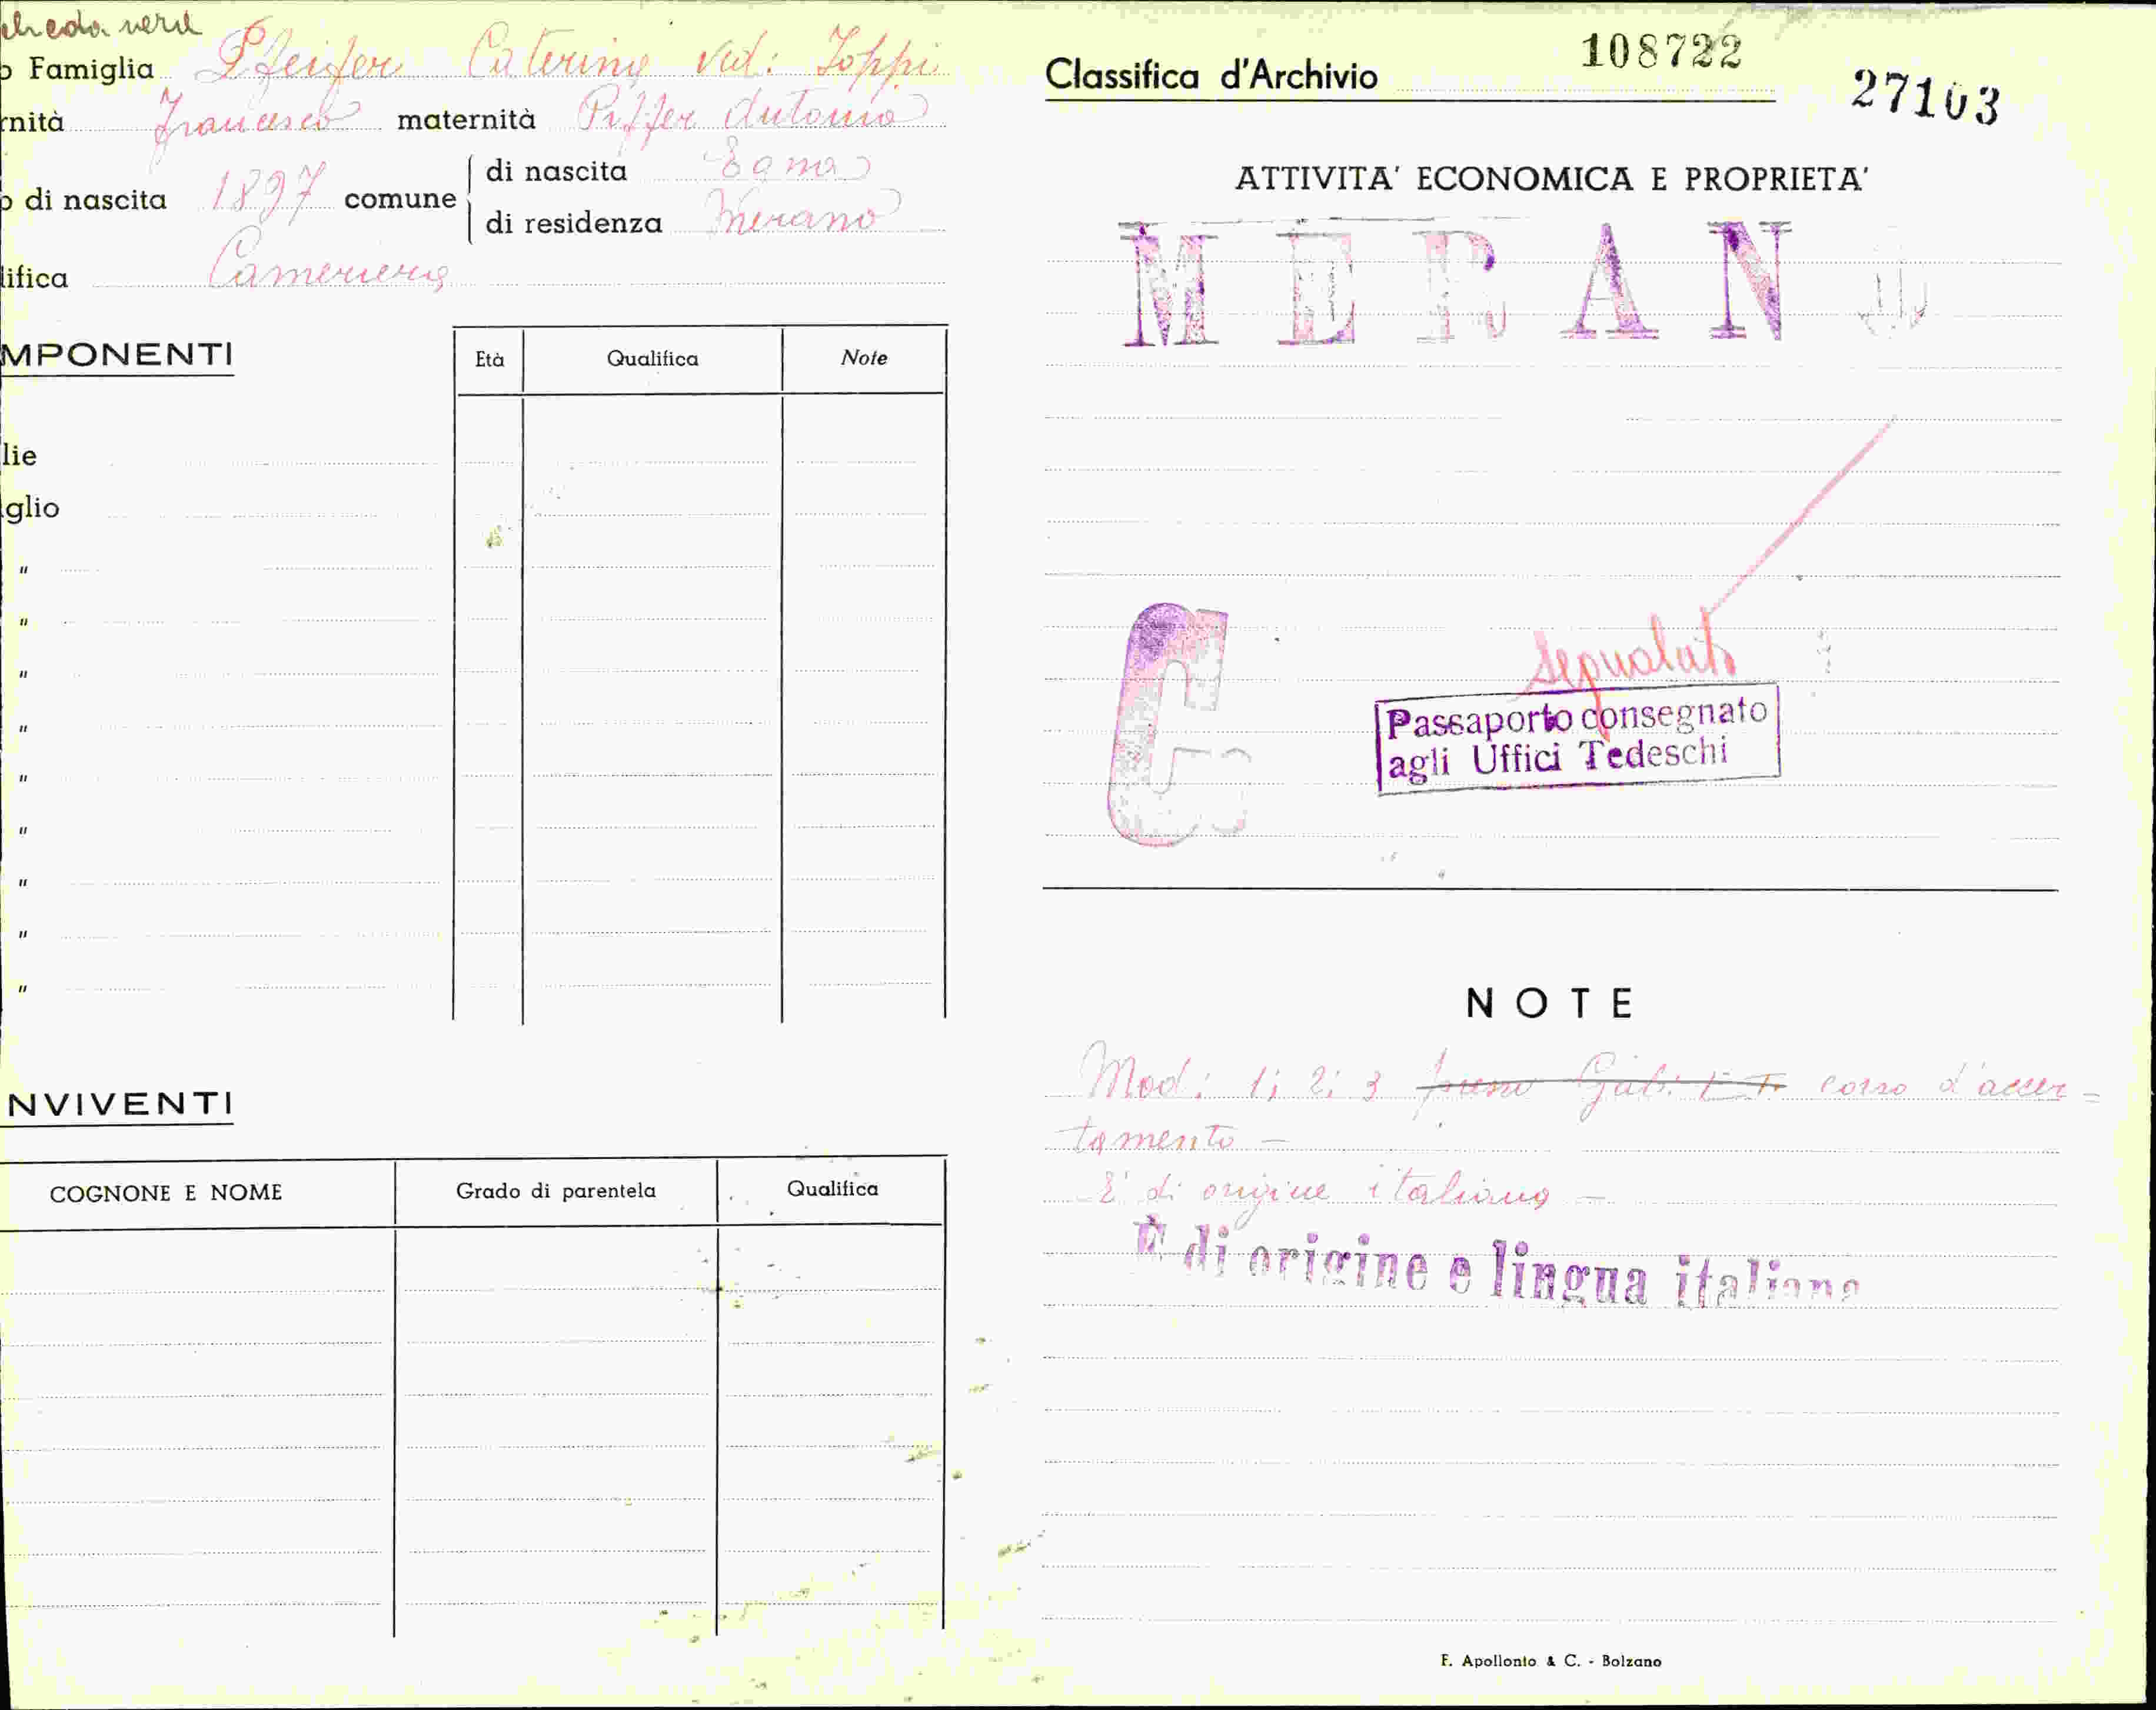 o Famiglia Pfeifer Caterina ved: Ioppi
rnità Francesco maternità Piffer Antonia
o di nascita 1897 comune
di nascita
di residenza Merano
lifica Cameriera
MPONENTI
Età Qualifica Note
lie
glio
"
"
"
"
"
"
"
"
"
NVIVENTI
COGNONE E NOME Grado di parentela Qualifica
Classifica d'Archivio 108722
27103
ATTIVITA' ECONOMICA E PROPRIETA'
MERANO
segnalato
Passaporto consegnato
agli Uffici Tedeschi
NOTE
Mod: 1; 2; 3 presso Gab: corso d'accer=
tamento -
E' di origine italiana -
È di origine e lingua italiana
F. Apollonio & C. - Bolzano